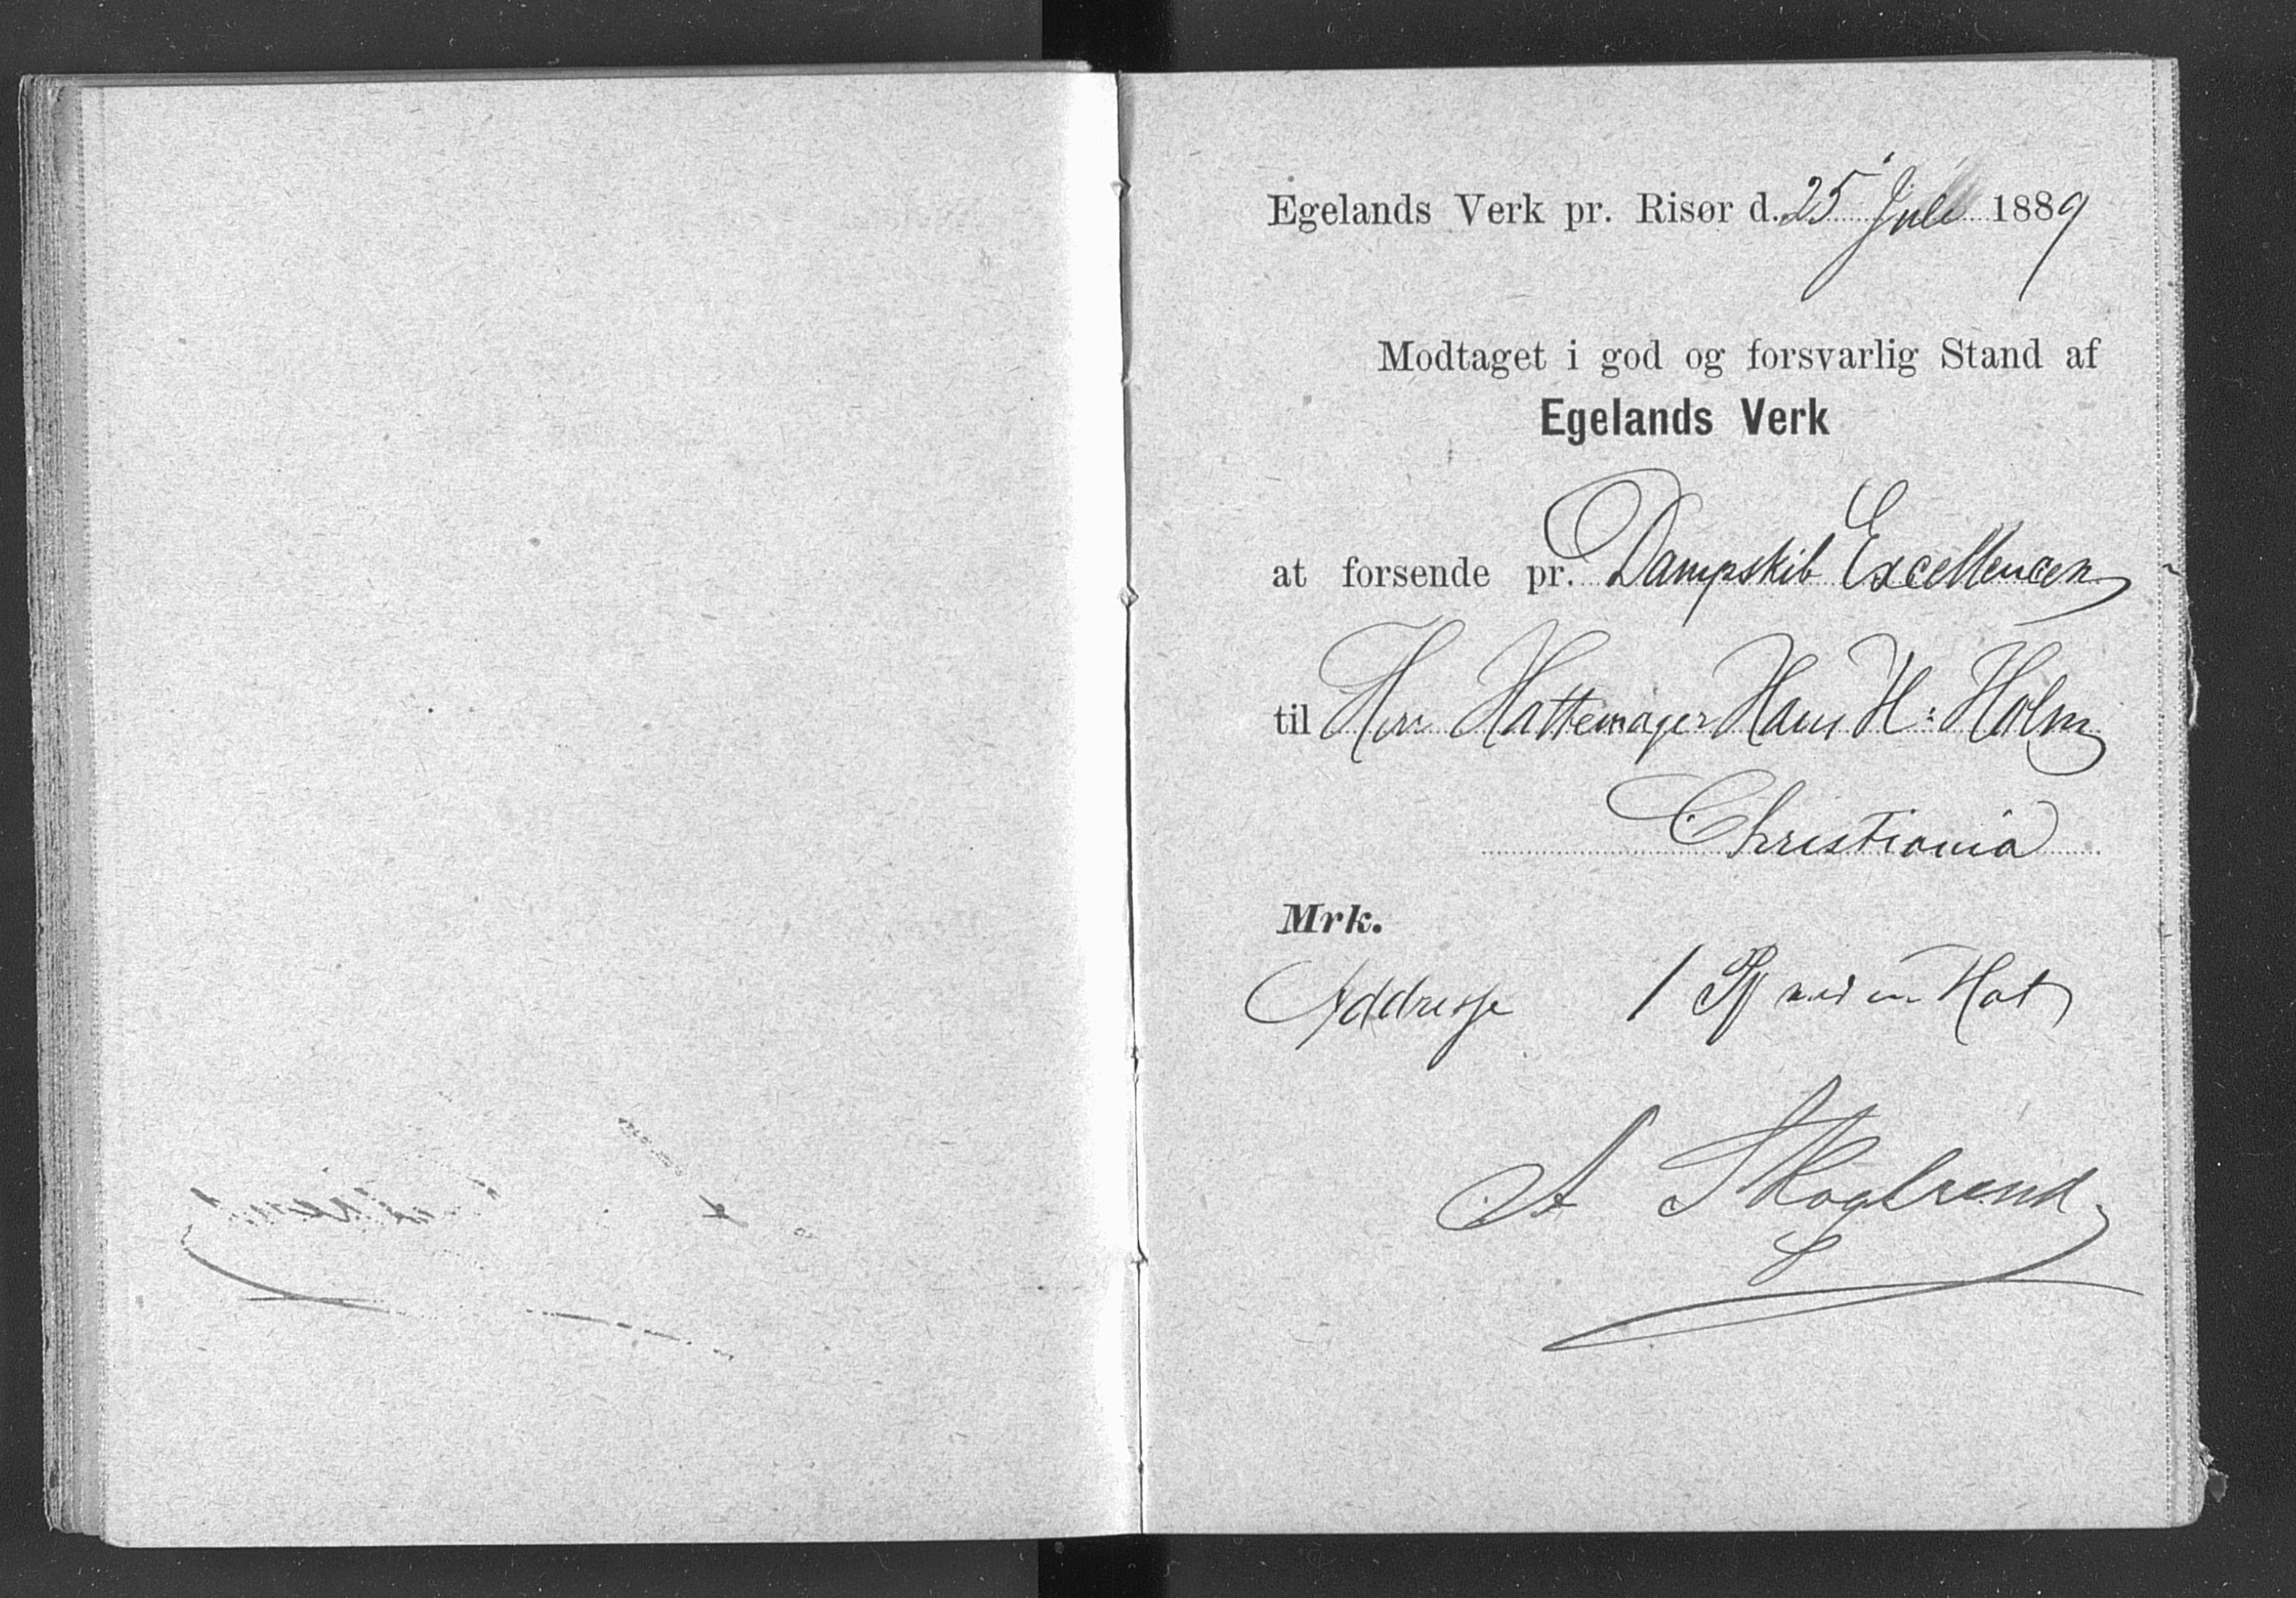 Egelands Verk pr. Risør d. 25 Juli 1889
Modtaget i god og forsvarlig Stand af
Egelands Verk
at forsende pr. Dampskib Excellencen
til Herr Hattemager Hans H: Holm
Christiania
Mrk.
Addresse 1 Pk med en Hat
A Skoglrund